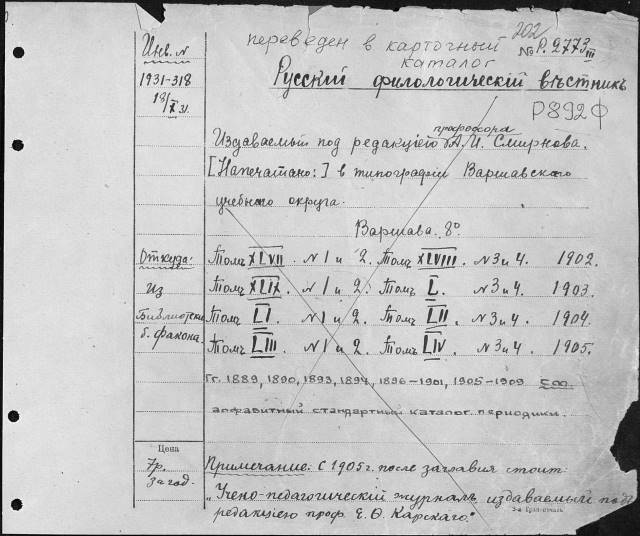 переведен в карточный
каталог
202
№ Р. 2773 III
Инв. №
1931-318
18/X 31.
Русскій филологическій вѣстникъ
Р892Ф
профессора
Издаваемый под редакціею А. И. Смирнова.
[Напечатано:] в типографіи Варшавскаго
учебнаго округа.
Варшава. 8°
Откуда:
из
Библиотеки
б. факона.
Томъ XLVII. N 1 и 2. Томъ XLVIII. N 3 и 4. 1902.
Томъ XLIX. N 1 и 2. Томъ L. N 3 и 4. 1903.
Томъ LI. N 1 и 2. Томъ LII. N 3 и 4. 1904.
Томъ LIII. N 1 и 2. Томъ LIV. N 3 и 4. 1905.
Гг. 1889, 1890, 1893, 1894, 1896-1901, 1905-1909 см.
алфавитный стандартный каталог периодики.
Цена
7р.
за год.
Примечание: С 1905 г. после заглавия стоит:
„Учено-педагогическій журналъ издаваемый подъ
редакціею проф. Е. Ѳ. Карскаго."